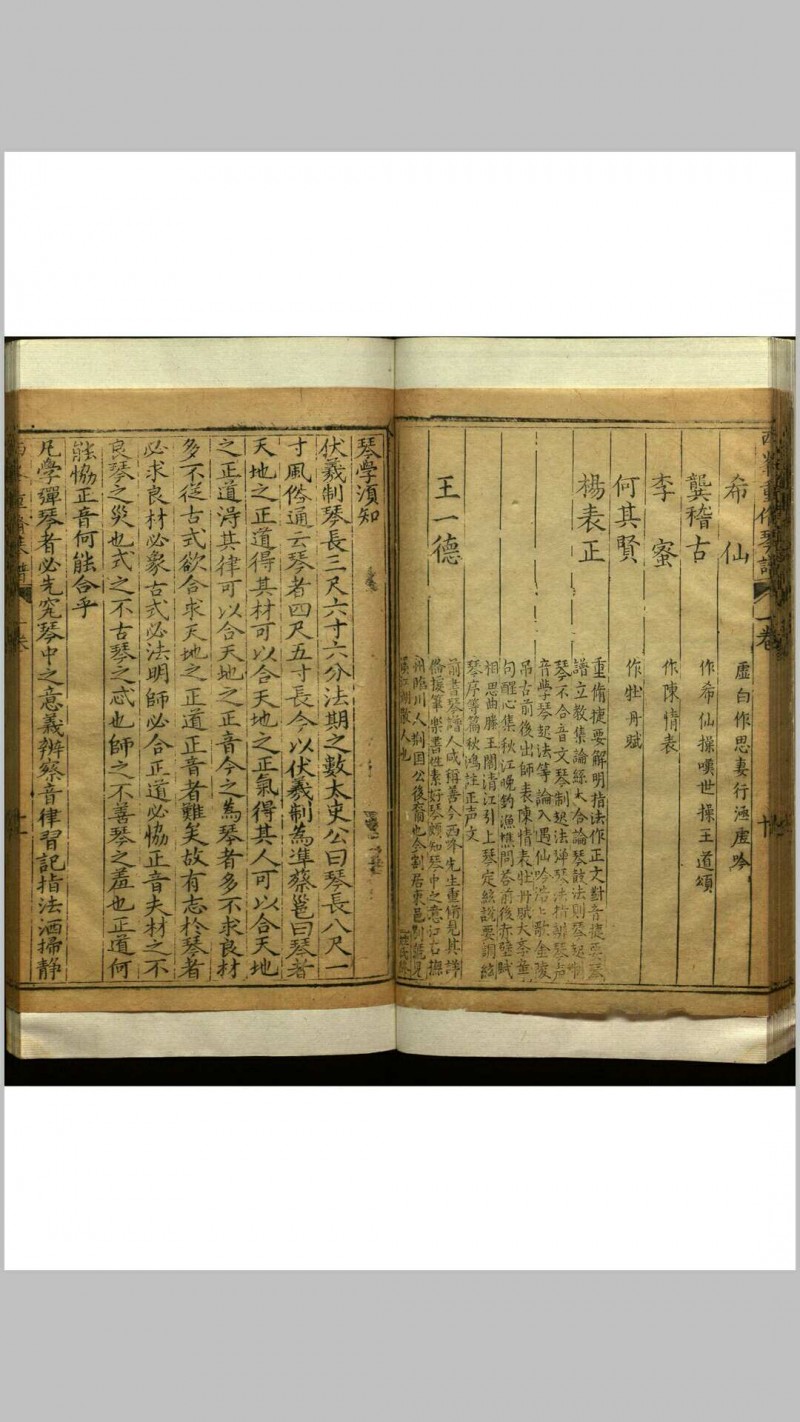 希仙 虛白作思妻行泛虛吟
龔稽古 作希仙操嘆世操王道頌
李蜜 作陳情表
何其賢 作牡丹賦
楊表正 重脩捷要解明指法作正文對音捷要琴
譜立教集論絲太合論琴散法則琴起制
琴不合音文琴制起法彈琴法
音學琴起法等論入遇仙吟浩上歌金陵
吊古前後出師表陳情表牡丹賦大李童
句醒心集秋江晚釣漁樵問荅前後赤壁賦
相思曲滕王閣清江引上琴定絃說要調絃
琴序等篇秋鴻註正声文
王一德 前書琴譜人咸稱善今西峯先生重脩見其譜
脩援筆樂書性素好琴頗知琴中之意江右撫
州臨川人荆国公後裔也今割居東邑
人也
琴學須知
伏羲制琴長三尺六寸六分法期之數太史公曰琴長八尺一
寸風俗通云琴者四尺五寸長今以伏羲制為準蔡邕曰琴者
天地之正道得其材可以合天地之正氣得其人可以合天地
之正道淂其律可以合天地之正音今之為琴者多不求良材
多不從古式欲合求天地之正道正音者難矣故有志於琴者
必求良材必象古式必法明師必合正道必恊正音夫材之不
良琴之災也式之不古琴之忒也師之不善琴之羞也正道何
能恊正音何能合乎
凡學彈琴者必先究琴中之意義辨察音律習記指法洒掃靜